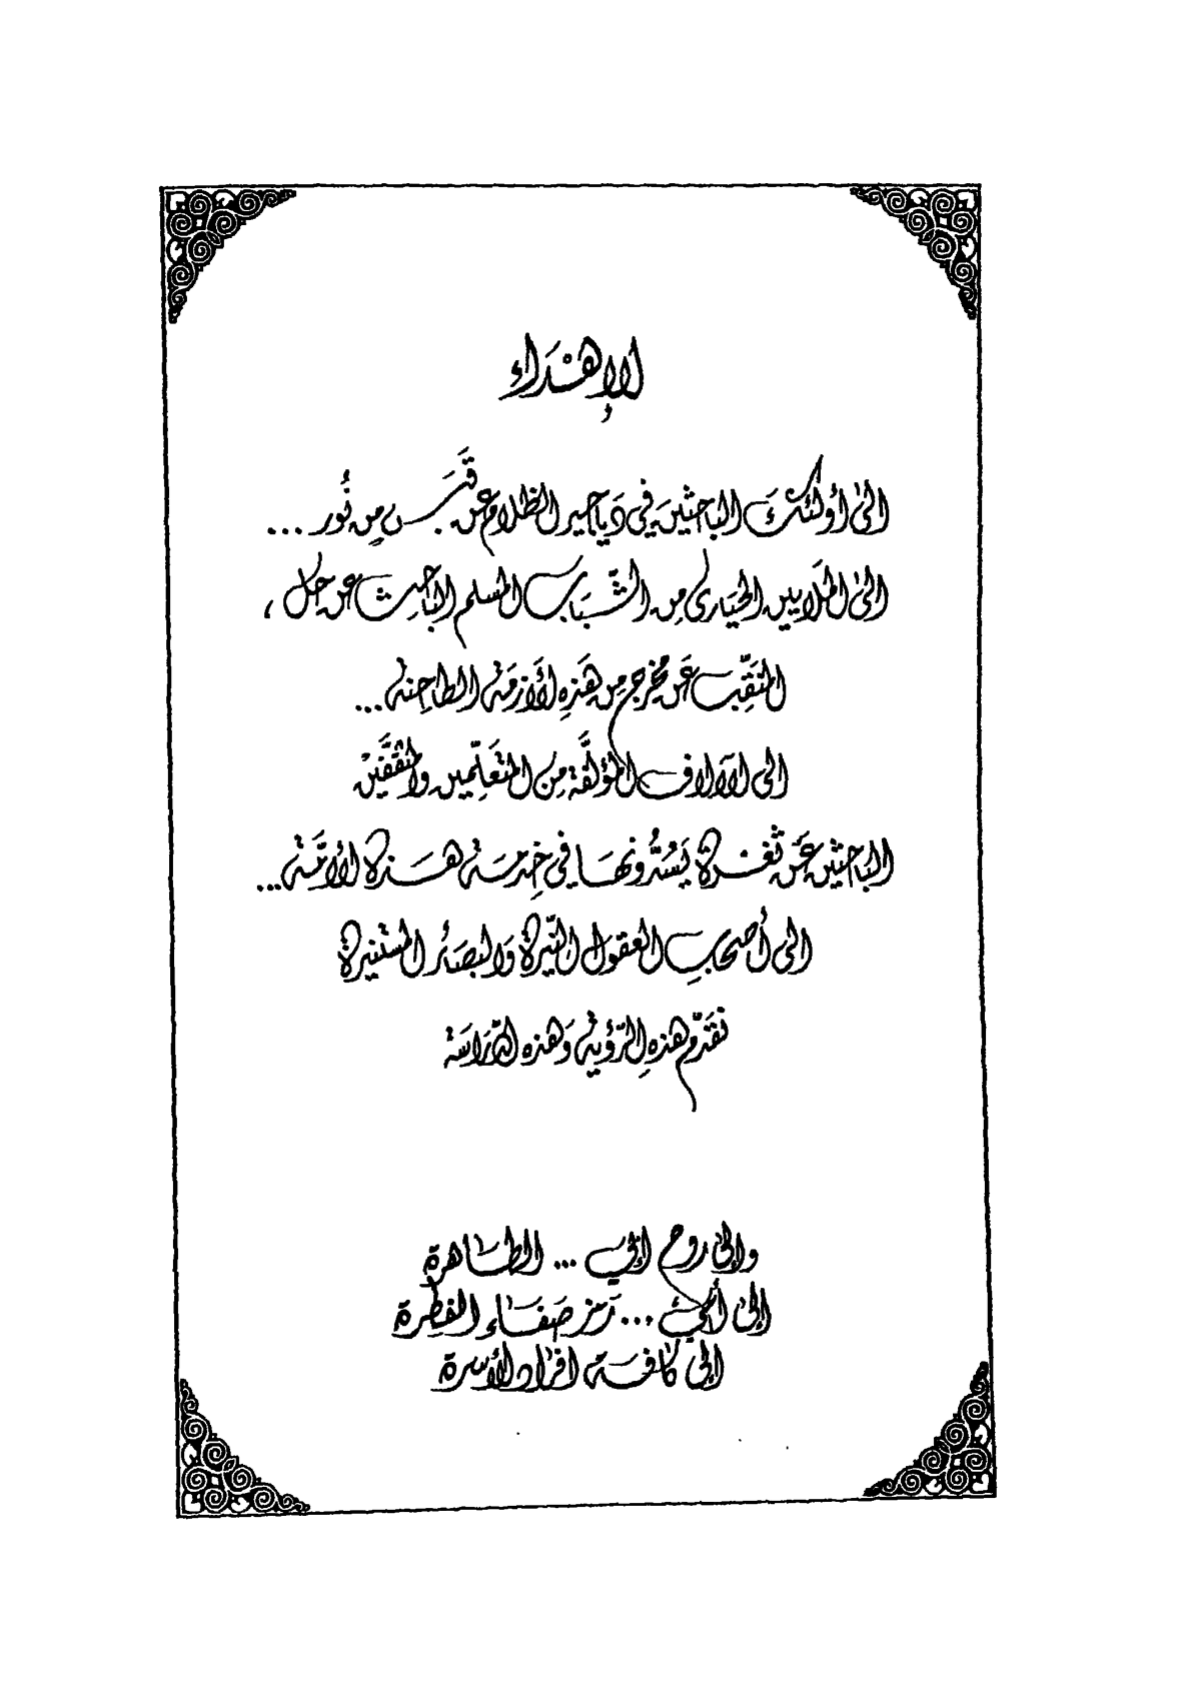 الإهْدَاء
إلى أولئكَ الباحثينَ في دَياجير الظلام عن قَبَسٍ مِن نُور ...
إلى الملَايين الحيَارى مِن الشّبَاب المسلم الباحِث عن حل ،
المنَقِّب عَن مخرج مِن هَذِه الأَزمَة الطاحِنة ...
إلى الآلاف المؤلَّفة مِن المتَعَلِّمين والمثقَّفيْن
الباحثين عَن ثغرة يَسُدُّونهَا في خِدمَة هَذه الأُمَّة ...
إلى أَصحابِ العقول النَّيِّرة وَالبصَائر المستنيرة
نقَدِّم هَذهِ الرّؤيةِ وَهذه الدّرَاسَة
وإلى روح أبي ... الطاهرة
إلى أمّي ... رَمز صَفَاء الفِطرة
إلى كافة أفراد الأسرة